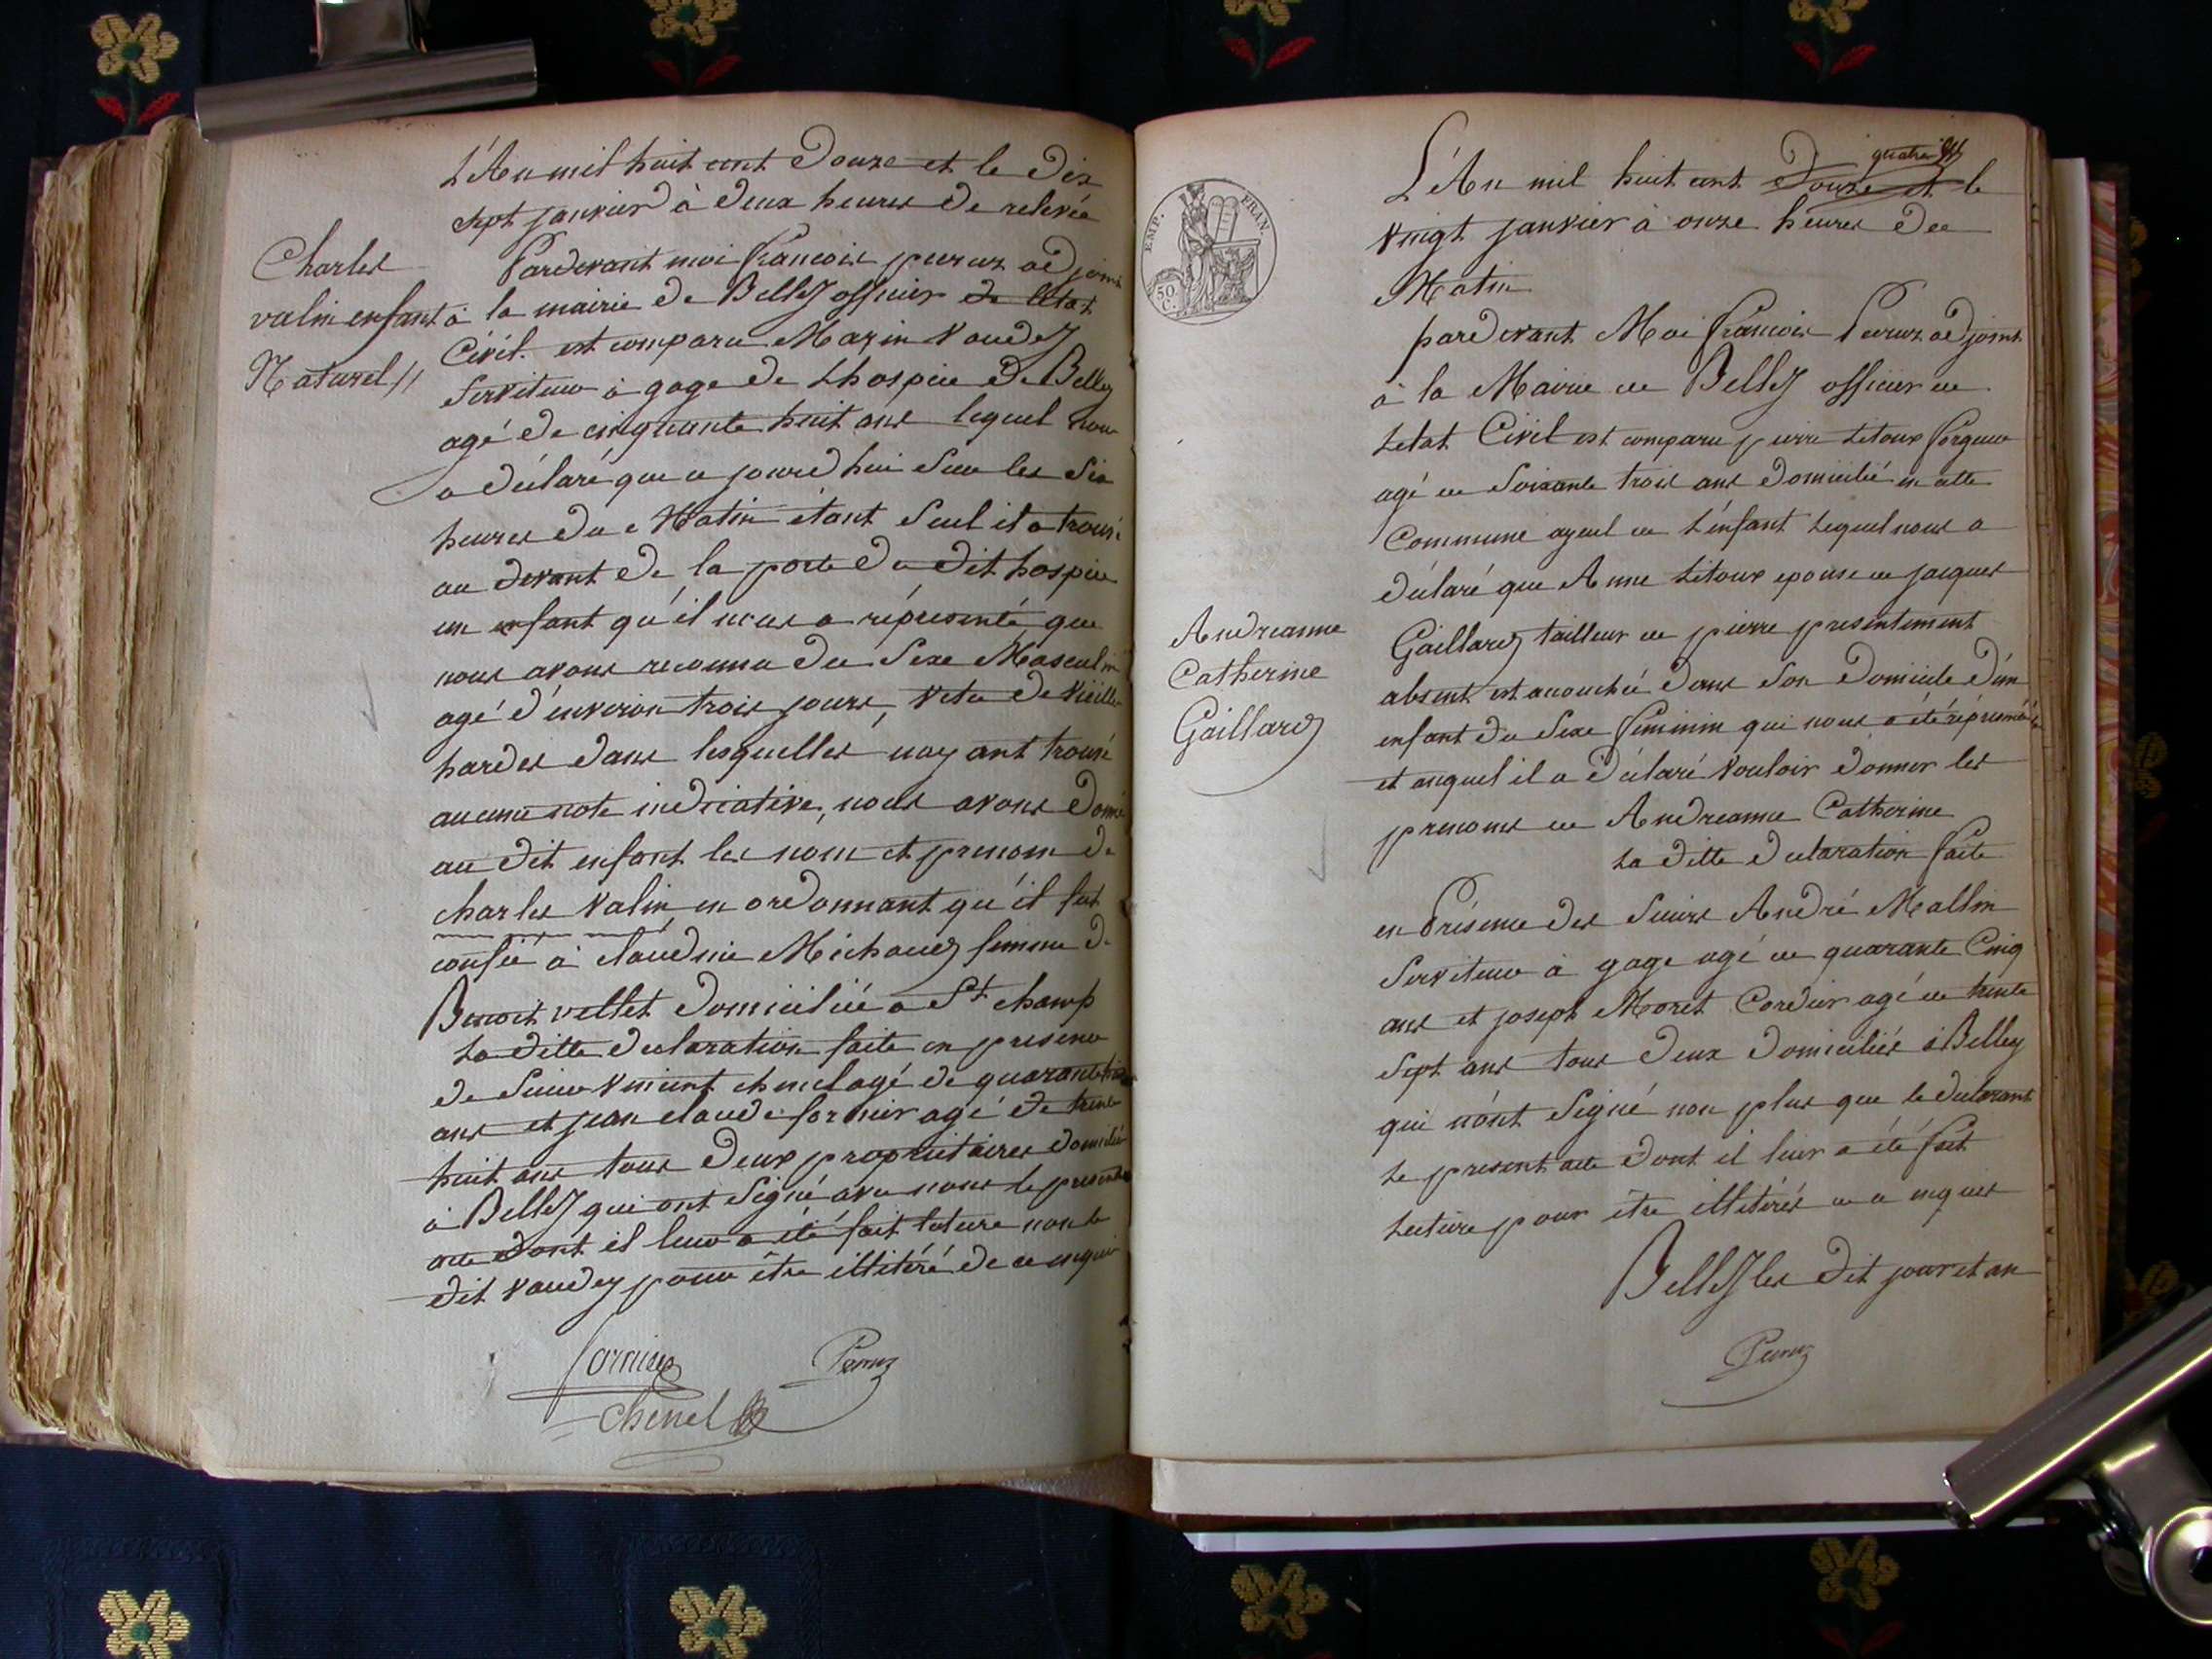 L'An mil huit cent Douze et le Dix
sept janvier à deux heures de relevée
Charles
valin enfant
Naturel //
Pardevant moi francois peruz adjoint
à la mairie de Belley officier de létat
Civil est comparu Marin Vaudey
Serviteur à gage de Lhospice de Belley
agé de cinquante huit ans lequel nous
a déclaré que ce jourd'hui Sur les Six
heures du Matin étant Seul il a trouvé
au devant de la porte du dit hospice
un enfant qu'il nous a réprésenté que
nous avons reconnu du Sexe Masculin
agé d'environ trois jours, vetu de vieilles
hardes dans lesquelles nayant trouvé
aucune note indicative, nous avons donné
au dit enfant les nom et prenom de
charles Valin en ordonnant qu'il fut
confié à claudine Michaud femme de
Benoit vellet domiciliée a St champ
La ditte declaration faite en presence
de Sieur Vincent chenel agé de quarante trois
ans et jean claude fornier agé de trente
huit ans tous deux proprietaires domiciliés
à Belley qui ont Signé avec nous le present
acte dont il leur a été fait lecture non le
dit Vaudey pour être illitéré de ce enquis
fornier
Peruz
Chenel
EMP. FRAN.
50 C.
quatre
L'An mil huit cent Douze et le
vingt janvier à onze heures du
Matin
pardevant Moi francois Peruz adjoint
à la Mairie de Belley officier de
Letat Civil est comparu pierre Litoux
agé de Soixante trois ans domicilié en cette
Commune ayeul de L'énfant Lequel nous a
déclaré que Anne Litoux epouse de jacques
Gaillard tailleur de pierre presentement
absent est accouchée dans Son Domicile d'ún
enfant du Sexe féminin qui nous a été répresenté
et auquel il a déclaré vouloir donner les
prenoms de Andreanne Catherine
Andreanne
Catherine
Gaillard
La ditte declaration faite
en Présence des Sieurs André Mallin
Serviteur à gage agé de quarante Cinq
ans et joseph Moret Cordier agé de trente
Sept ans tous deux domiciliés à Belley
qui n'ont Signé non plus que le declarant
Le present acte dont il leur a été fait
Lecture pour être illitérés de ce enquis
Belley les dit jour et an
Peruz